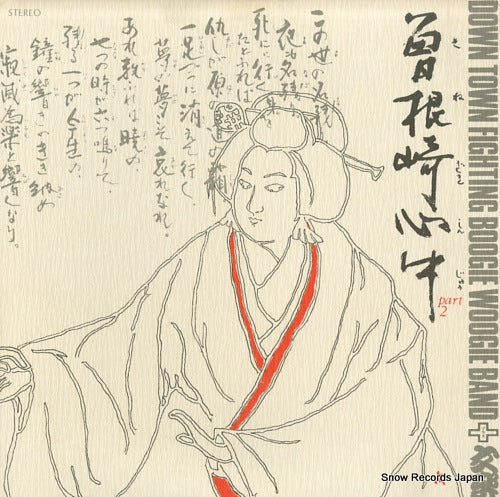 STEREO
DOWN TOWN FIGHTING BOOGIE WOOGIE BAND +
曽根崎心中
そ ね ざき しん じゅう
part
2
この世の名残
夜も名残
死に行く
たとふれば
しが原の道の霜
一足づつに消えて行く
夢の夢こそ哀れなれ。
あれ数ふれば暁の
七つの時が六つ鳴りて、
残る一つが今生の
鐘の響きのきき納め
寂滅為楽と響くなり。
Snow Records Japan